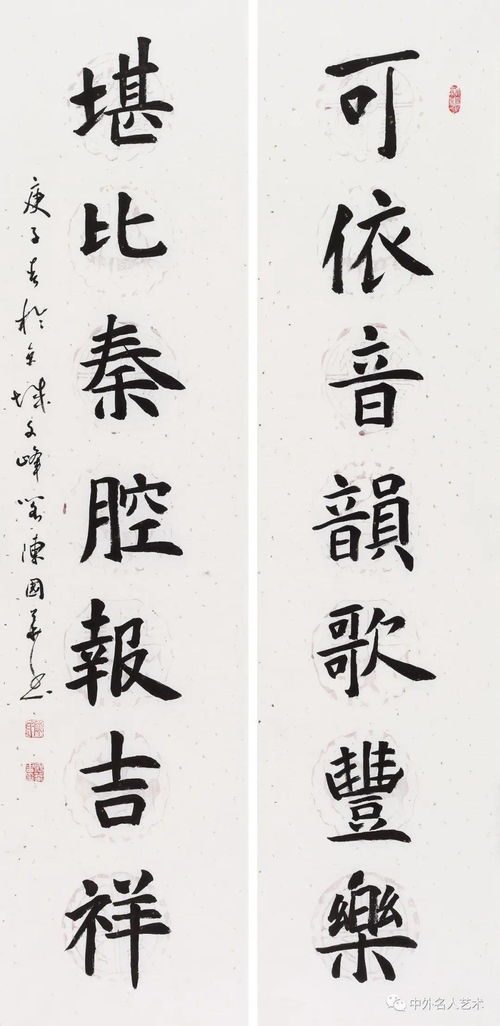 可依音韻歌豐樂
堪比秦腔報吉祥
庚子春於京城文峰堂陳國華書
中外名人艺术